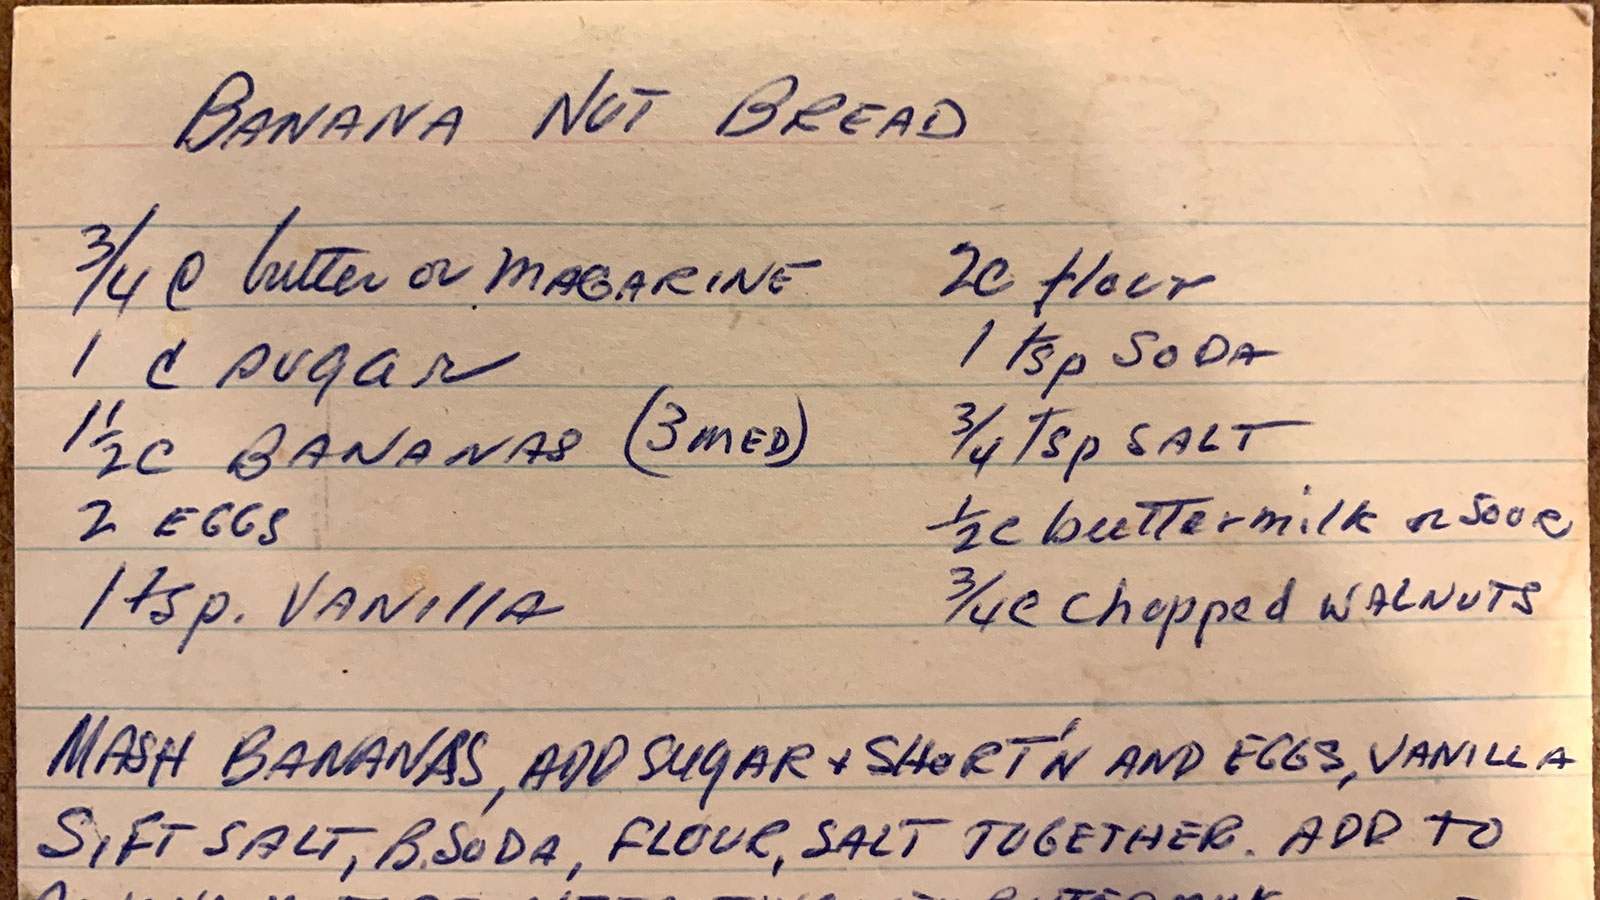 BANANA NUT BREAD
3/4 C butter or MAGARINE
1 C sugar
1 1/2 C BANANAS (3 MED)
2 EGGS
1 tsp. VANillA
2C flour
1 tsp SODA
3/4 Tsp SALT
1/2 C buttermilk or sour
3/4 C chopped WALNUTS
MASH BANANAS, ADD SUGAR + SHORT'N AND EGGS, VANILLA
SIFT SALT, B.SODA, FLOUR, SALT TOGETHER. ADD TO